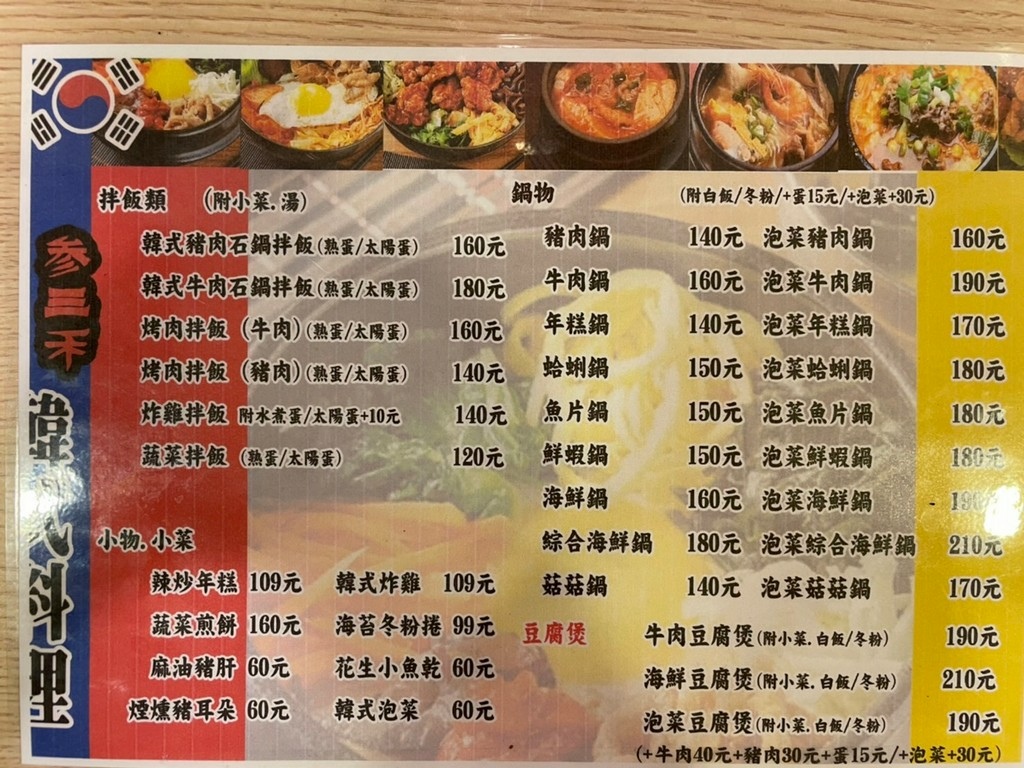 参三禾
韓式料理
拌飯類 (附小菜.湯)
韓式豬肉石鍋拌飯(熟蛋/太陽蛋) 160元
韓式牛肉石鍋拌飯(熟蛋/太陽蛋) 180元
烤肉拌飯 (牛肉)(熟蛋/太陽蛋) 160元
烤肉拌飯 (豬肉)(熟蛋/太陽蛋) 140元
炸雞拌飯 附水煮蛋/太陽蛋+10元 140元
蔬菜拌飯 (熟蛋/太陽蛋) 120元
小物.小菜
辣炒年糕 109元 韓式炸雞 109元
蔬菜煎餅 160元 海苔冬粉捲 99元
麻油豬肝 60元 花生小魚乾 60元
煙燻豬耳朵 60元 韓式泡菜 60元
鍋物 (附白飯/冬粉/+蛋15元/+泡菜+30元)
豬肉鍋 140元 泡菜豬肉鍋 160元
牛肉鍋 160元 泡菜牛肉鍋 190元
年糕鍋 140元 泡菜年糕鍋 170元
蛤蜊鍋 150元 泡菜蛤蜊鍋 180元
魚片鍋 150元 泡菜魚片鍋 180元
鮮蝦鍋 150元 泡菜鮮蝦鍋 180元
海鮮鍋 160元 泡菜海鮮鍋
綜合海鮮鍋 180元 泡菜綜合海鮮鍋 210元
菇菇鍋 140元 泡菜菇菇鍋 170元
豆腐煲 牛肉豆腐煲(附小菜.白飯/冬粉) 190元
海鮮豆腐煲(附小菜.白飯/冬粉) 210元
泡菜豆腐煲(附小菜.白飯/冬粉) 190元
(+牛肉40元+豬肉30元+蛋15元/+泡菜+30元)